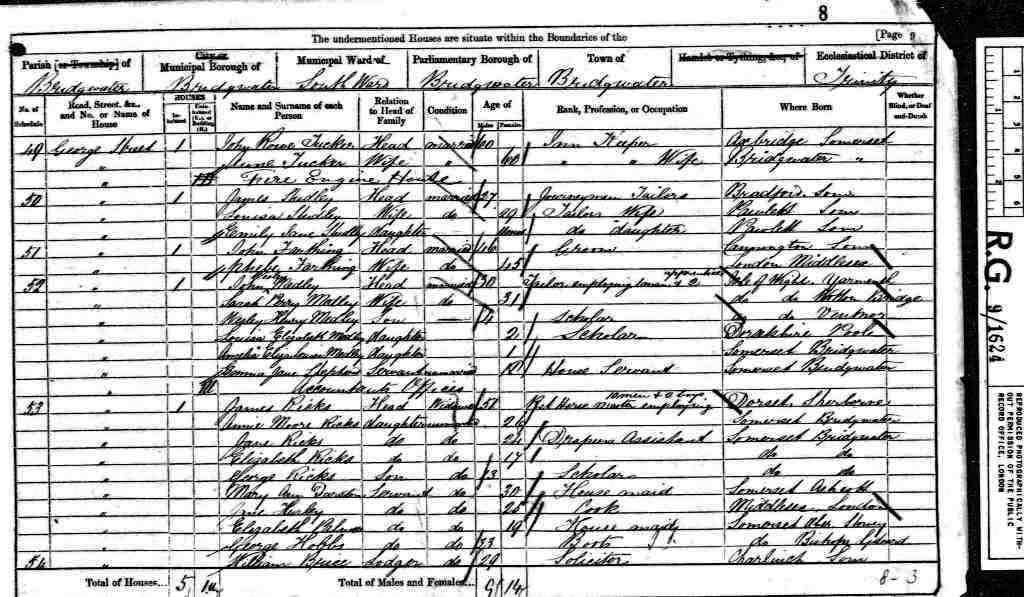 8
The undermentioned Houses are situate within the Boundaries of the [Page 9
Parish [or Township] of Municipal Borough of Municipal Ward of Parliamentary Borough of Town of Hamlet or Tything, &c., of Ecclesiastical District of
Bridgwater Bridgwater South Ward Bridgwater Bridgwater Trinity
No. of Schedule Road, Street, &c., and No. or Name of House HOUSES Inhabited Name and Surname of each Person Relation to Head of Family Condition Age of Males Females Rank, Profession, or Occupation Where Born Whether Blind, or Deaf-and-Dumb
49 George Street 1 John Rowe Tucker Head married 60 Inn Keeper Axbridge Somerset
" Tucker Wife " 60 " " Wife Bridgwater "
" Fire Engine House
50 " 1 James Head married 37 Journeyman Tailor Bradford Som
" Louisa Wife do 29 Tailors Wife Pawlett Som
" Emily Jane daughter do daughter Pawlett Som
51 " 1 John Farthing Head married 46 Groom Cannington Som
" Phebe Farthing Wife do 45 London Middlesex
52 " 1 John Medley Head married 30 Tailor employing 2 apprentices Isle of Wight Yarmouth
" Sarah Perry Medley Wife do 31 do do Wotton Bridge
" Wesley Henry Medley Son 4 Scholar do do Ventnor
" Louisa Elizabeth Medley daughter 2 Scholar Dorsetshire Poole
" Amelia Medley daughter 1 Somerset Bridgwater
" Jane Stephens Servant unmarried House Servant Somerset Bridgwater
" Accountants Offices
53 " 1 James Ricks Head Widower 51 Post Horse master employing 10 men & 2 boys Dorset Sherborne
" Annie Moore Ricks daughter unmarried Somerset Bridgwater
" Jane Ricks do do Drapers Assistant Somerset Bridgwater
" Elizabeth Ricks do do 17 do do
" George Ricks Son do 13 Scholar do do
" Mary Ann Servant do 30 House maid Somerset Ashcott
" Jane do do 25 Cook Middlesex London
" Elizabeth do do 19 House maid Somerset Over Stowey
" George Hobbs do do 33 Boots do Bishops Lydeard
54 " William Lodger do 29 Solicitor Charlinch Som
Total of Houses... 5 Total of Males and Females... 9 14
8-3
R.G. 9/1624
REPRODUCED PHOTOGRAPHICALLY WITH-
OUT PERMISSION OF THE PUBLIC
RECORD OFFICE, LONDON